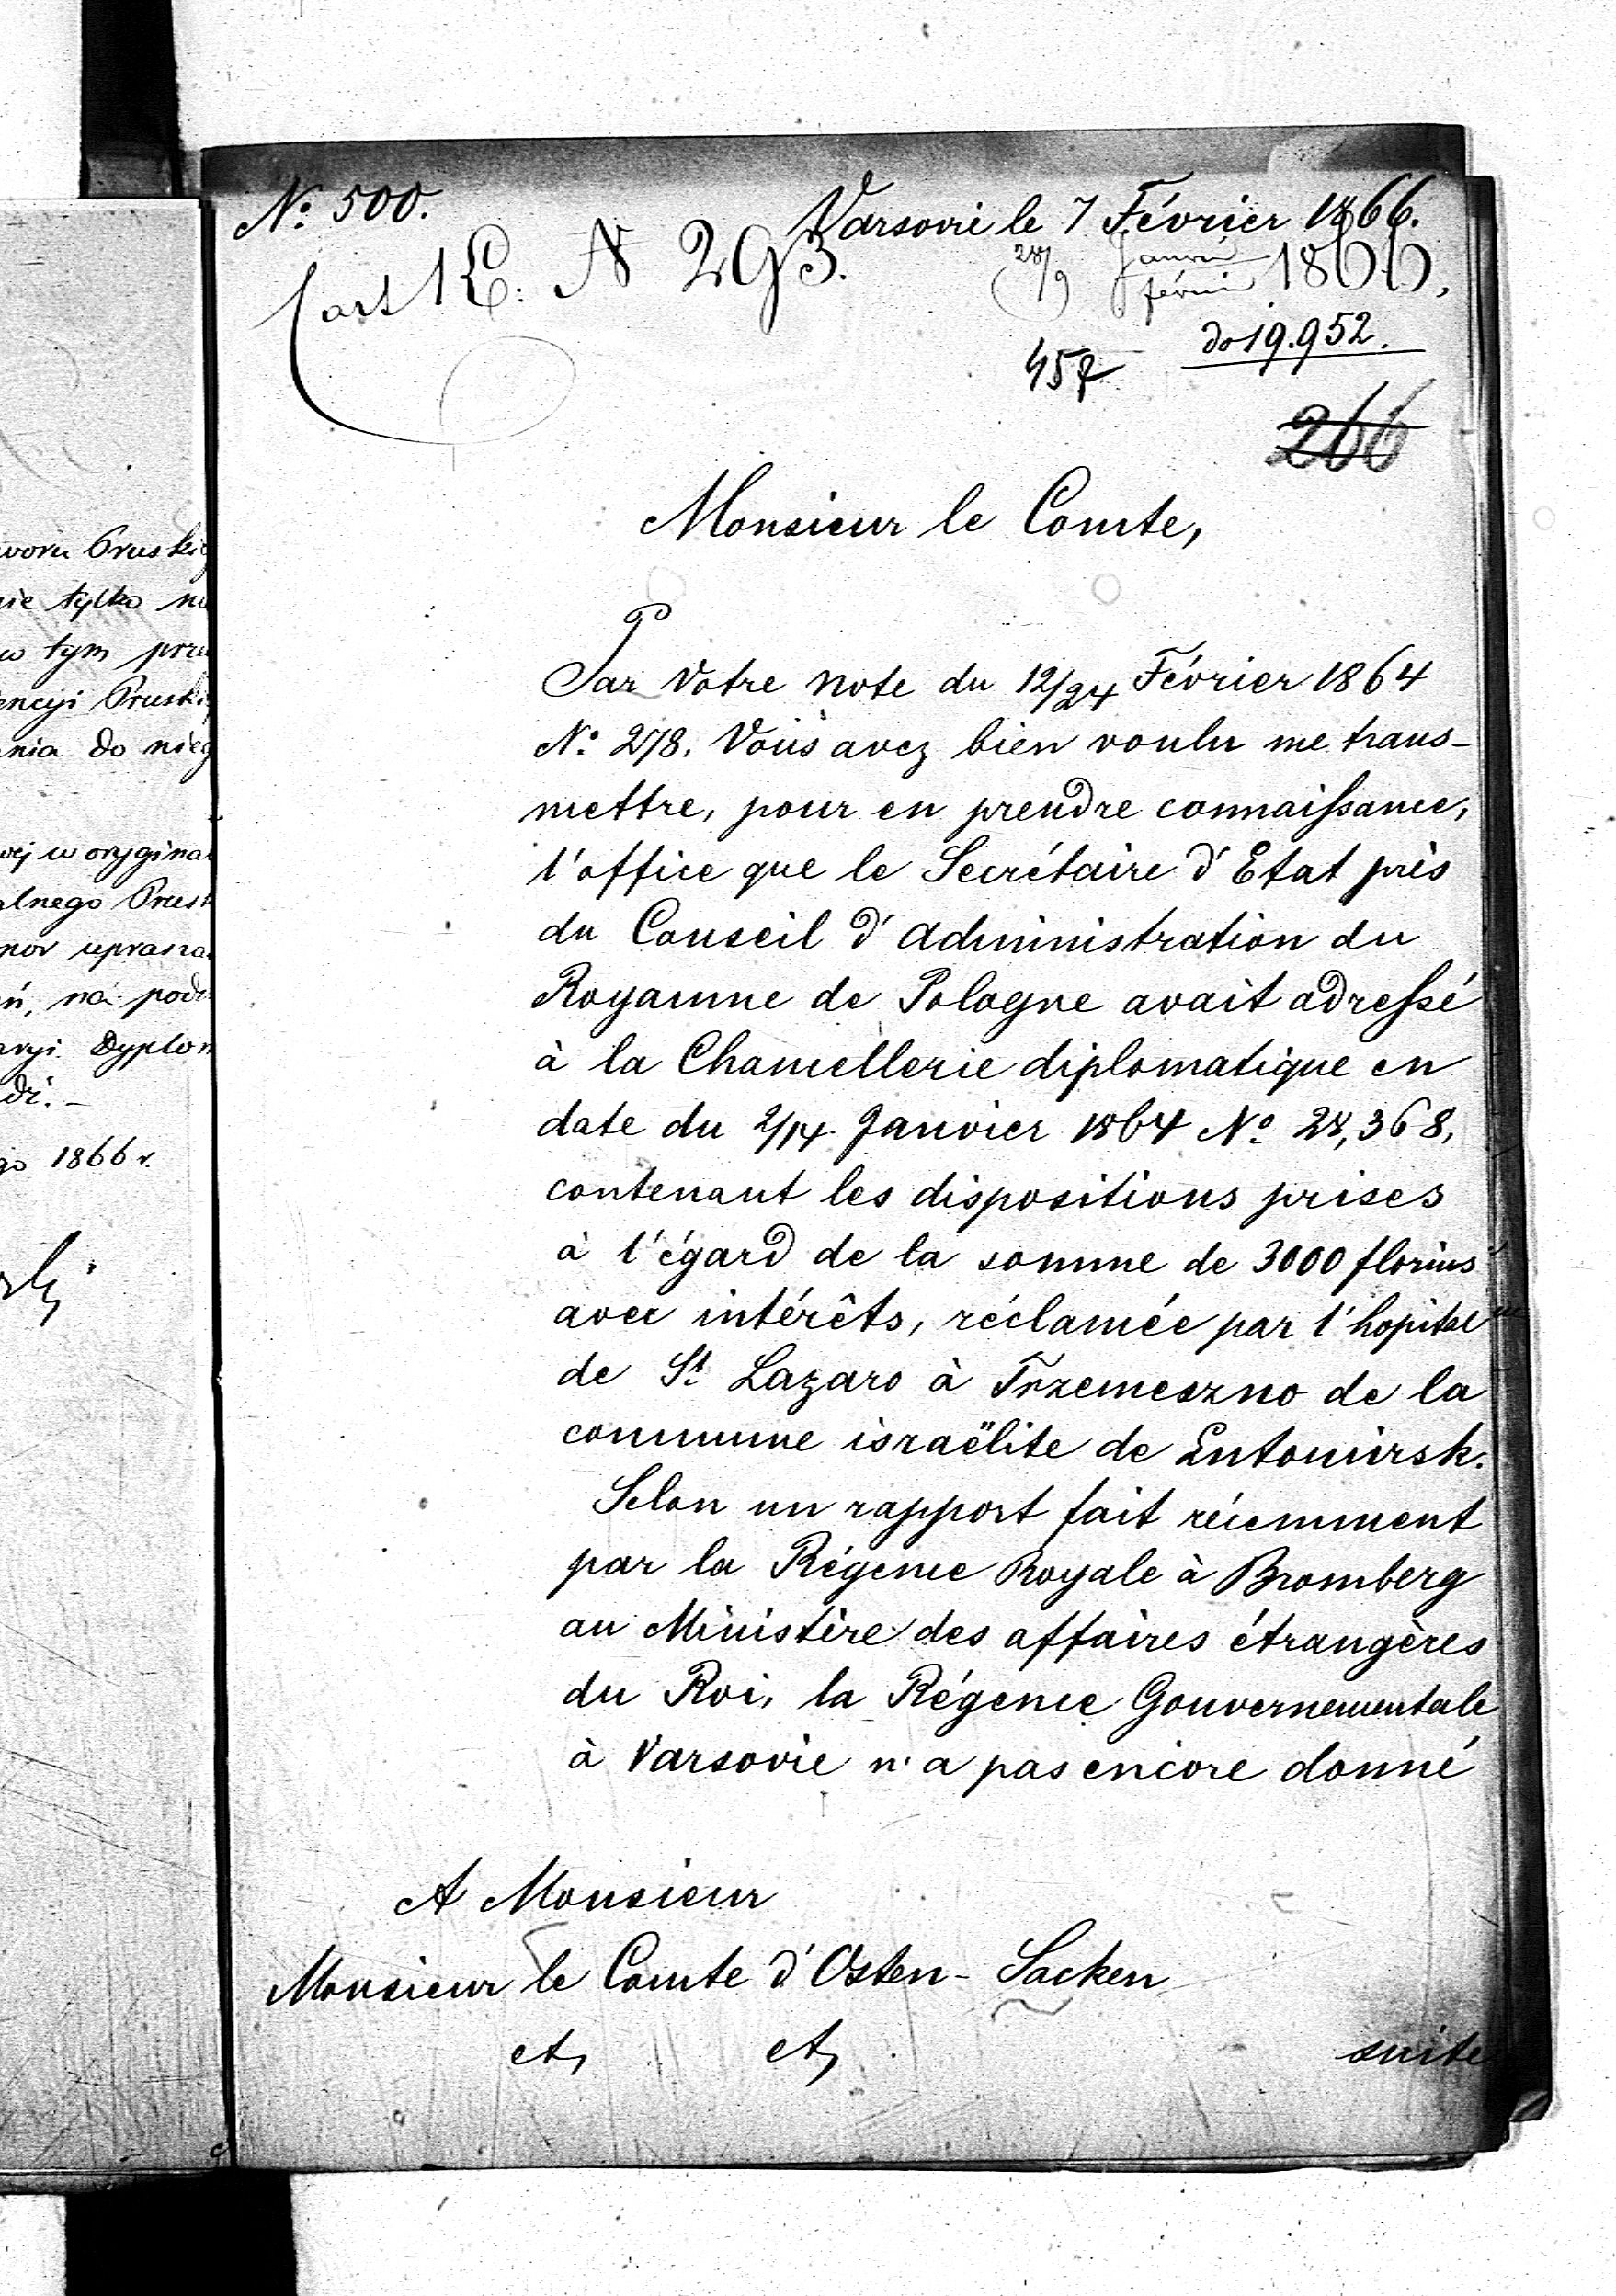 No. 500.
Varsovie le 7 Février 1866.
N 293.
28/9 Janvier février 1866,
do 19.952.
457
266
Monsieur le Comte,
Par Votre note du 12/24 Février 1864
No. 278. Vous avez bien voulu me trans-
mettre, pour en prendre connaissance,
l'office que le Secrétaire d'Etat près
du Conseil d'administration du
Royaume de Pologne avait adressé
à la Chancellerie diplomatique en
date du 2/14. Janvier 1864 No. 28,368,
contenant les dispositions prises
à l'égard de la somme de 3000 florins
avec intérêts, réclamée par l'hopital
de St. Lazaro à Trzemeszno de la
commune israëlite de Lutomirsk.
Selon un rapport fait récemment
par la Régence Royale à Bromberg
au Ministère des affaires étrangères
du Roi, la Régence Gouvernementale
à Varsovie n'a pas encore donné
A Monsieur
Monsieur le Comte d'Osten-Sacken
et, et,
suite
woru Pruskie
nie tylko na
w tym prze
encyi Pruski
ania do nieg
wej w orygina
alnego Prusk
nor uprasza
ń, na pod
aryi Dyplom
dzi.-
go 1866 r.